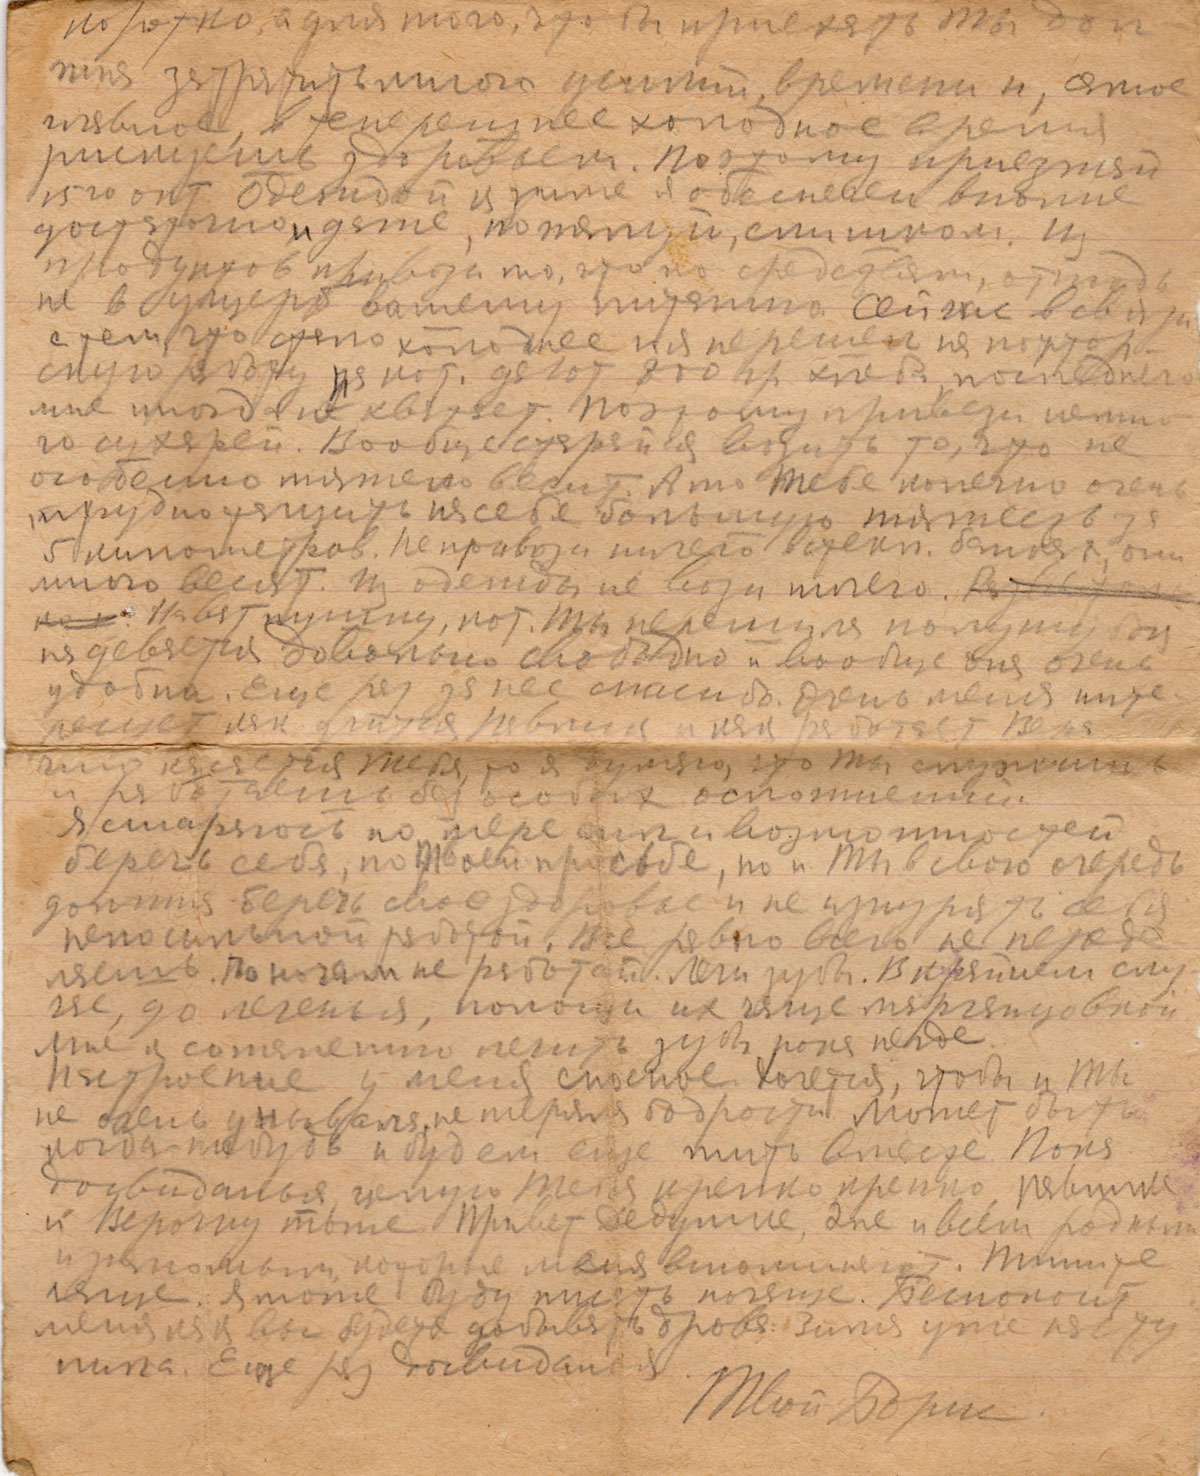 коротко, а для того, что бы приехать Ты дол
жна затратить много усилий, времени и, самое
главное, в теперешнее холодное время
рискуешь здоровьем. Поэтому приезжай
15го окт. Одеждой к зиме я обеспечен вполне
достаточно и даже, пожалуй, слишком. Из
продуктов привози то, что по средствам, отнюдь
не в ущерб вашему питанию. Сейчас в связи
с тем, что стало холоднее и я перешел на
скую работу дают 800 гр хлеба, последнего
мне иногда не хватает. Поэтому привези немно
го сухарей. Вообще старайся возить то, что не
особенно тяжело весит. А то Тебе конечно очень
трудно тащить на себе большую тяжесть за
5 километров. Не привози ничего в стекл. банках, они
много весят. Из одежды не вози ничего.
Ты перешила получше
надевается довольно свободно и вообще она очень
удобна. Еще раз за нее спасибо. Очень меня инте-
ресует как учится Павлик и как работает Вера
Что касается Тебя, то я думаю, что Ты служишь
и работаешь без особых осложнений.
Я стараюсь по мере сил и возможностей
беречь себя, по Твоей просьбе, но и Ты в свою очередь
должна беречь свое здоровье и не изнурять себя
непосильной работой. Все равно всего не переде
лаешь. По ночам не работай. Лечи зубы. В крайнем слу
чае, до леченья, полощи их чаще марганцовкой
Мне к сожалению лечить зубы пока негде.
Настроение у меня сносное. Хочется, чтобы и Ты
не очень унывала, не теряла бодрости. Может быть
когда-нибудь и будем еще жить вместе. Пока
досвиданья, целую Тебя крепко крепко, Павлика
и Верочку тоже. Привет дедушке, Эле и всем родным
и знакомым, которые меня вспоминают. Пишите
чаще. Я тоже буду писать почаще. Беспокоит
меня как вы будете добывать дрова. Зима уже насту
пила. Еще раз досвиданья.
Твой Борис.